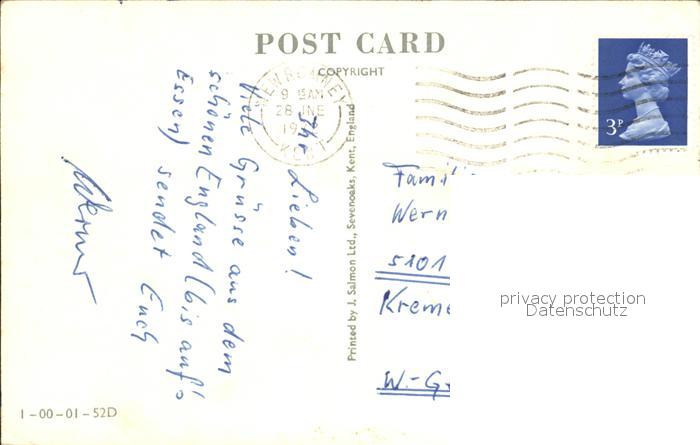 POST CARD
COPYRIGHT
NEW ROMNEY
9 15AM
28 JNE
19
KENT
3P
Ihr Lieben!
Viele Grüsse aus dem
schönen England (bis auf's
Essen) sendet Euch
Printed by J. Salmon Ltd., Sevenoaks, Kent, England
Fami
Wern
5101
Kreme
W.-G
privacy protection
Datenschutz
1-00-01-52D